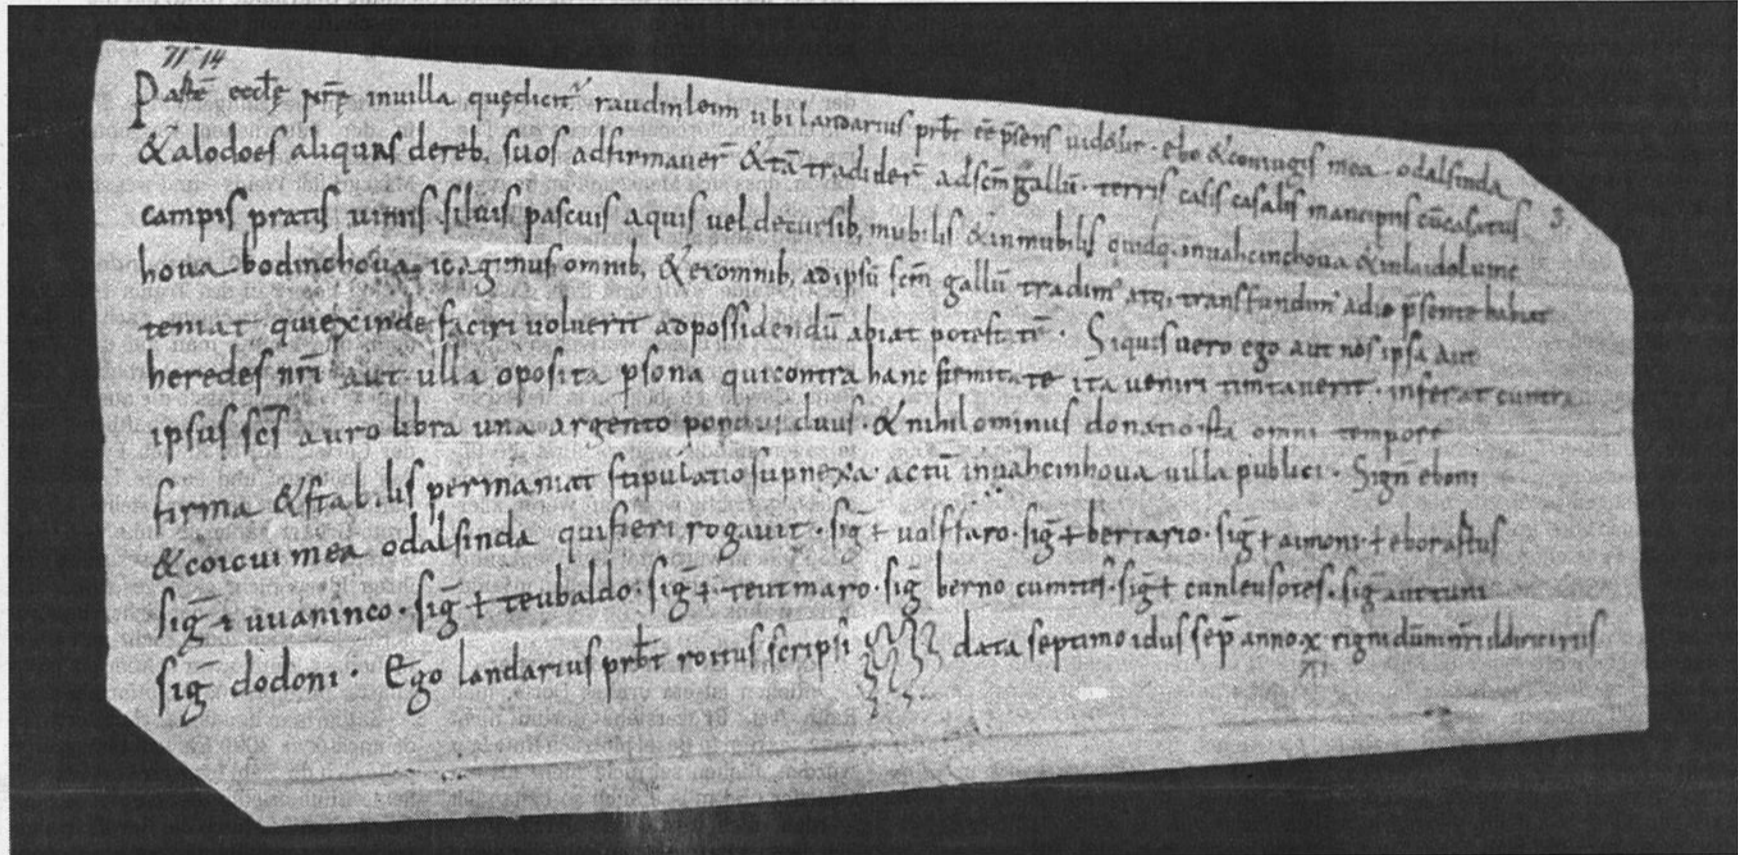 71 14
Pastē eccłę nr̄ę inuilla quędicit' raudinleim ubi landarius prb̄t eē p̄sens uid&ur · ebo &coniugis mea · odalsinda
&alodoes aliquas dereb; suos adfirmauer̄ &tā tradider̄ adscm̄ gallū · terris casis casalis mancipiis cūcasatus 3
campis pratis uineis siluis pascuis aquis uel decursib; mubilis &inmubilis quidq; inuahcinchoua &inlaidoluinc
houa bodinchoua omnib; &exomnib; adipsū scm̄ gallū tradim' atq; transfundim' adie p̄sente habiat
teniat quiexinde faciri uoluerit adpossidendū abiat potestatē · Siquis uero ego aut nos ipsa aut
heredes nr̄i aut ulla oposita p̄sona quicontra hanc firmitate ita ueniri timtauerit · inferat cuntra
ipsus scs̄ auro libra una argento duus · &nihilominus donatio ista omni tempore
firma &stabilis permaniat stipulatio supnexa · actū inuahcinhoua uilla publici · Sign̄ eboni
&coicui mea odalsinda quifieri rogauit · siḡ + uolffaro · siḡ + bertario · siḡ + aimoni · + eborastus
siḡ + uuaninco · siḡ + teubaldo · siḡ + teutmaro · siḡ berno cumtis · siḡ + cunleusotes · siḡ auttuni
siḡ dodoni · Ego landarius prb̄t roitus scripsi data septimo idus sep̄ anno x rigni dūm nr̄i ildirici riis